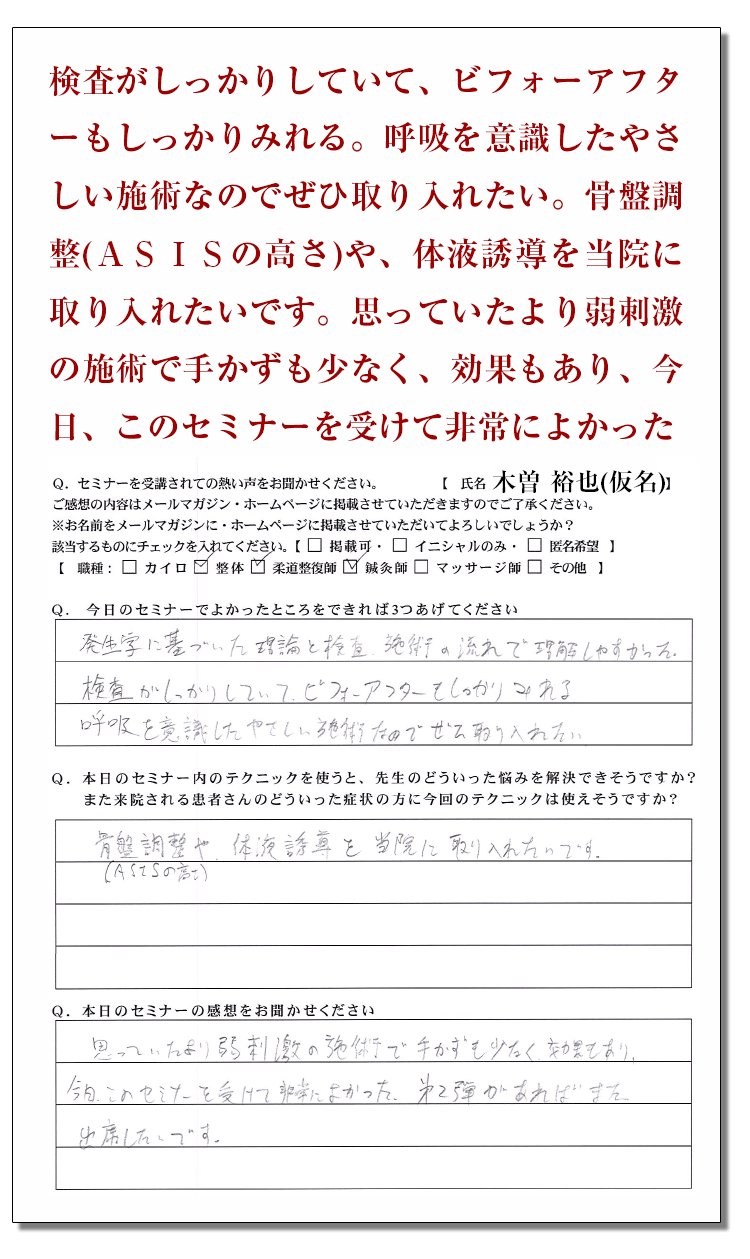 検査がしっかりしていて、ビフォーアフタ
ーもしっかりみれる。呼吸を意識したやさ
しい施術なのでぜひ取り入れたい。骨盤調
整(ＡＳＩＳの高さ)や、体液誘導を当院に
取り入れたいです。思っていたより弱刺激
の施術で手かずも少なく、効果もあり、今
日、このセミナーを受けて非常によかった
Q．セミナーを受講されての熱い声をお聞かせください。 【 氏名 木曽 裕也(仮名)】
ご感想の内容はメールマガジン・ホームページに掲載させていただきますのでご了承ください。
※お名前をメールマガジンに・ホームページに掲載させていただいてよろしいでしょうか？
該当するものにチェックを入れてください。【 □ 掲載可・ □ イニシャルのみ・ □ 匿名希望 】
【 職種： □ カイロ ☑ 整体 ☑ 柔道整復師 ☑ 鍼灸師 □ マッサージ師 □ その他 】
Q． 今日のセミナーでよかったところをできれば3つあげてください
発生学に基づいた理論と検査、施術の流れで理解しやすかった。
検査がしっかりしていて、ビフォーアフターもしっかりみれる
呼吸を意識したやさしい施術なのでぜひ取り入れたい
Q．本日のセミナー内のテクニックを使うと、先生のどういった悩みを解決できそうですか？
また来院される患者さんのどういった症状の方に今回のテクニックは使えそうですか？
骨盤調整や、体液誘導を当院に取り入れたいです。
(ASISの高さ)
Q．本日のセミナーの感想をお聞かせください
思っていたより弱刺激の施術で手かずも少なく、効果もあり、
今日、このセミナーを受けて非常によかった。第2弾があればまた
出席したいです。